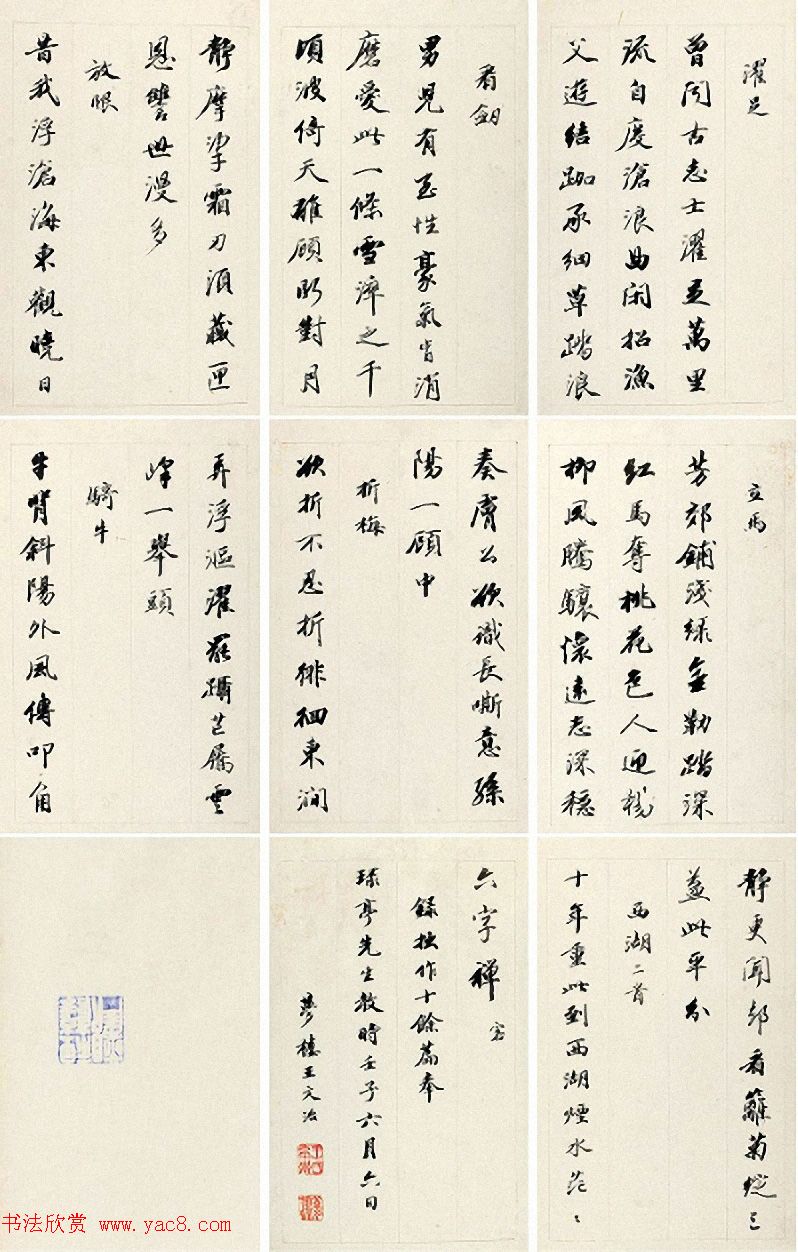 濯足
曾闻古志士濯足萬里
流自度滄浪曲闲招漁
父遊结跏承细草踏浪
看劒
男兒有至性豪氣肯消
磨愛此一條雪淬之千
頃波倚天雄顧盼對月
靜摩挲霜刃須藏匣
恩讐世漫多
放眼
昔我浮滄海東觀曉日
立馬
芳郊鋪淺绿金勒踏深
红馬奪桃花色人迎楊
柳風騰驤懷遠志深穩
奏膚公欲識長嘶意孫
陽一顧中
折梅
欲折不忍折徘徊東澗
弄浮漚濯罷躡芒屩雲
峰一舉頭
騎牛
牛背斜陽外風傳叩角
靜更聞郊看籬菊綻三
益此平分
西湖二首
十年重此到西湖煙水茫〻
六字禅
錄拙作十餘篇奉
球亭先生教時壬子六月六日
夢樓王文治
书法欣赏 www.yac8.com